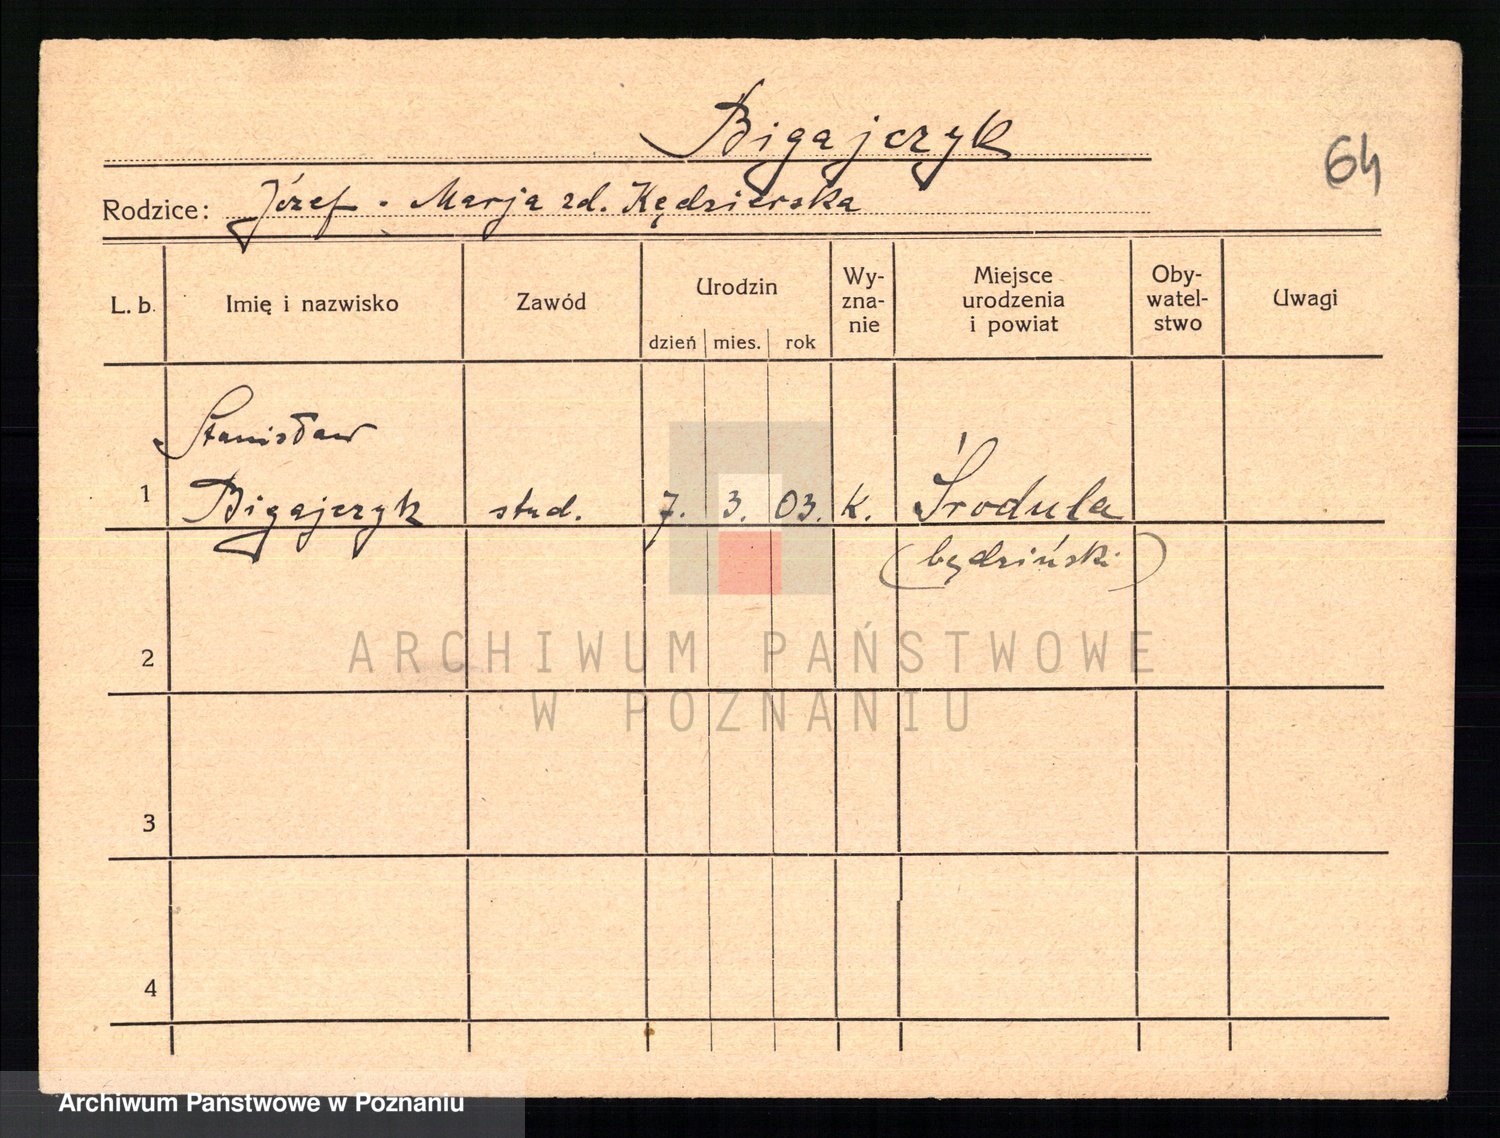 Bigajczyk
64
Rodzice: Józef - Marja zd. Kędzierska
L. b. Imię i nazwisko Zawód Urodzin dzień mies. rok Wy-zna-nie Miejsce urodzenia i powiat Oby-watel-stwo Uwagi
Stanisław
1 Bigajczyk stud. 7. 3. 03. k. Środula
(będziński)
2
ARCHIWUM PAŃSTWOWE
W POZNANIU
3
4
Archiwum Państwowe w Poznaniu